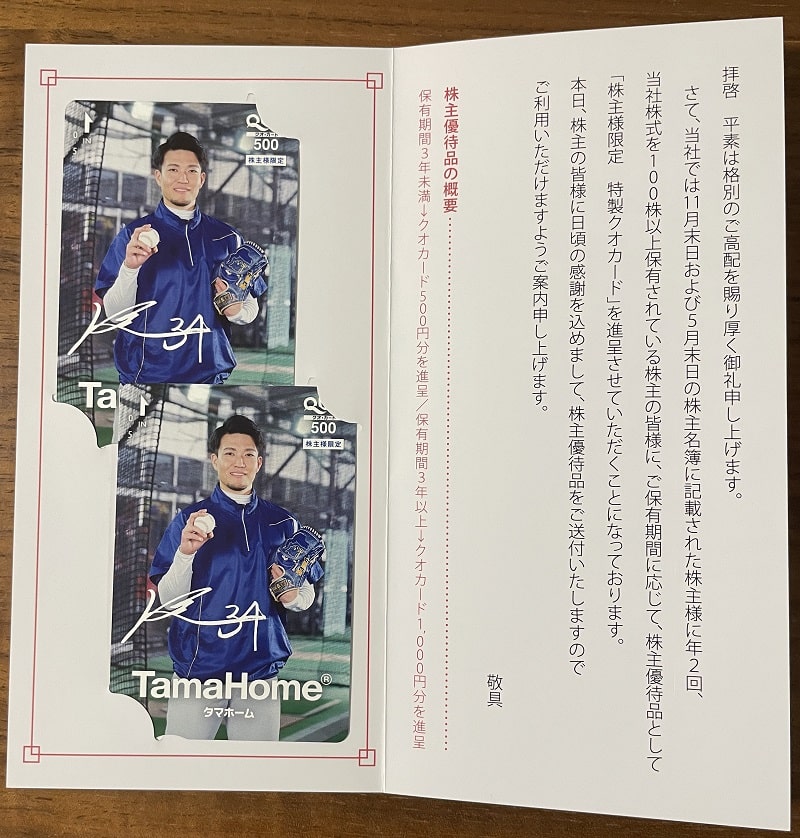 拝啓　平素は格別のご高配を賜り厚く御礼申し上げます。
さて、当社では11月末日および5月末日の株主名簿に記載された株主様に年2回、
当社株式を100株以上保有されている株主の皆様に、ご保有期間に応じて、株主優待品として
「株主様限定　特製クオカード」を進呈させていただくことになっております。
本日、株主の皆様に日頃の感謝を込めまして、株主優待品をご送付いたしますので
ご利用いただけますようご案内申し上げます。
敬具
株主優待品の概要
保有期間3年未満→クオカード500円分を進呈／保有期間3年以上→クオカード1,000円分を進呈
クオ・カード
500
株主様限定
IN
34
Ta
クオ・カード
500
株主様限定
IN
34
TamaHome®
タマホーム